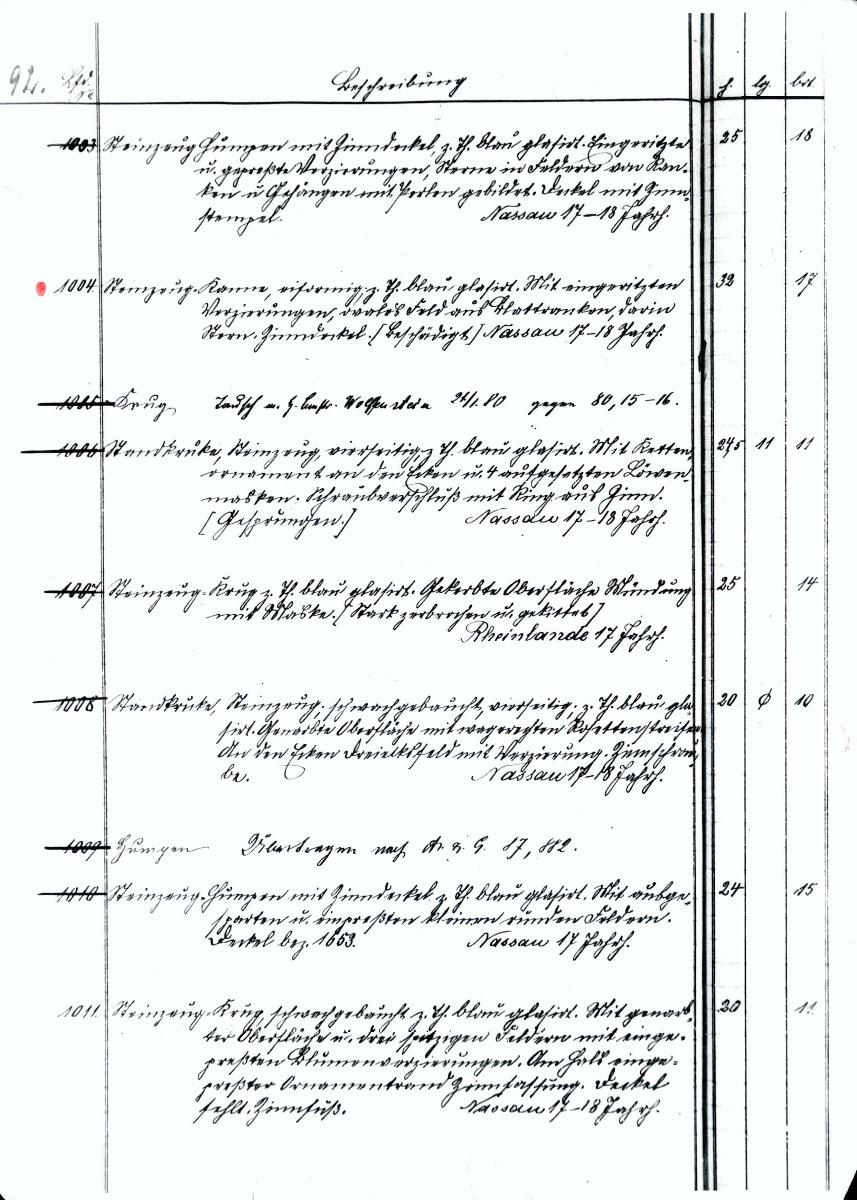 92. Lfd. Beschreibung h. lg. brt.
1003 Steinzeug Humpen mit Zinndeckel, z. Th. blau glasirt. Eingeritzte 25 18
u. gepreßte Verzierungen, Sterne in Feldern von Ran-
ken u Gehängen mit Perlen gebildet. Deckel mit Zinn-
stempel. Nassau 17–18 Jahrh.
1004. Steinzeug-Kanne, eiförmig, z. Th. blau glasirt. Mit eingeritzten 32 17
Verzierungen, ovales Feld aus Blattranken, darin
Stern. Zinndeckel. [Beschädigt] Nassau 17–18 Jahrh.
1005 Krug Tausch m. H. 24/1.80 gegen 80, 15–16.
1006 Standkruke, Steinzeug, vierseitig, z Th. blau glasirt. Mit Ketten- 24,5 11 11
ornament an den Ecken u. 4 aufgesetzten Löwen-
masken. Schraubverschluß mit Ring aus Zinn.
[Gesprungen.] Nassau 17–18 Jahrh.
1007 Steinzeug-Krug z. Th. blau glasirt. Gekerbte Oberfläche Mündung 25 14
mit Maske. [Stark zerbrochen u. gekittet]
Rheinlande 17 Jahrh.
1008 Standkruke, Steinzeug, schwachgebaucht, vierseitig, z. Th. blau gla- 20 Ø 10
sirt. Genarbte Oberfläche mit wagerechten Rosettenstreifen
An den Ecken Dreiecksfeld mit Verzierung. Zinnschrau-
be. Nassau 17–18 Jahrh.
1009 Humpen Übertragen nach K. u. G. 87, 882.
1010 Steinzeug-Humpen mit Zinndeckel z. Th. blau glasirt. Mit ausge- 24 15
sparten u. einpreßten kleinen runden Feldern.
Deckel bez. 1653. Nassau 17 Jahrh.
1011. Steinzeug-Krug, schwachgebaucht z. Th. blau glasirt. Mit genarb- 20 11
ter Oberfläche u. drei spitzigen Feldern mit einge-
preßten Blumenverzierungen. Am Hals einge-
preßter Ornamentrand Zinnfassung. Deckel
fehlt. Zinnfuß. Nassau 17–18 Jahrh.